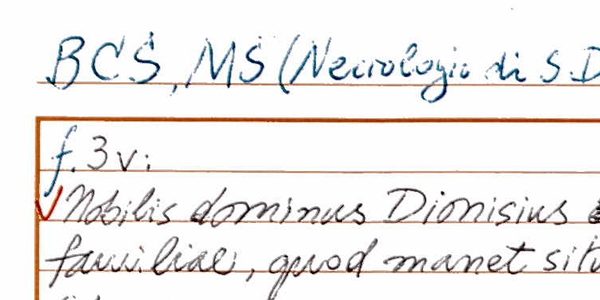 BCS, MS (Necrologio di S.D
f. 3v:
Nobilis dominus Dionisius
familiae, quod manet situ